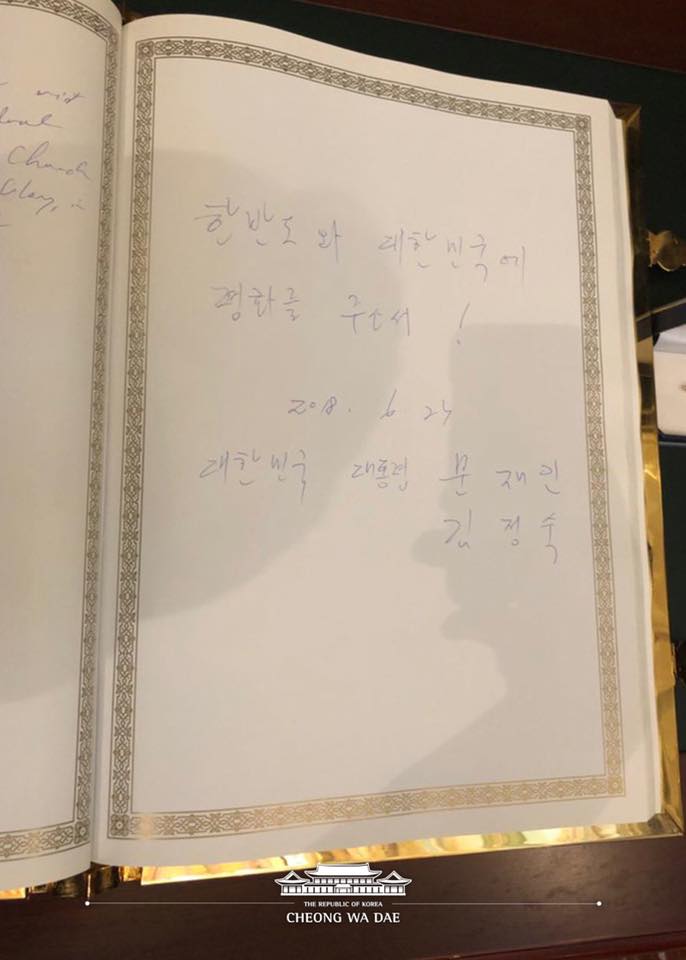 Church
한반도와 대한민국에
평화를 주소서 !
2018. 6
대한민국 대통령 문재인
김정숙
THE REPUBLIC OF KOREA
CHEONG WA DAE